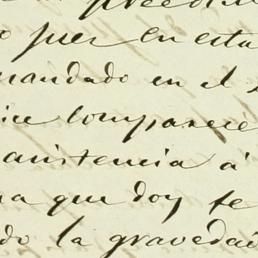 o juez en esta
mandado en el
ice comparecie
asistencia á
na que doy fe
do la gravedad